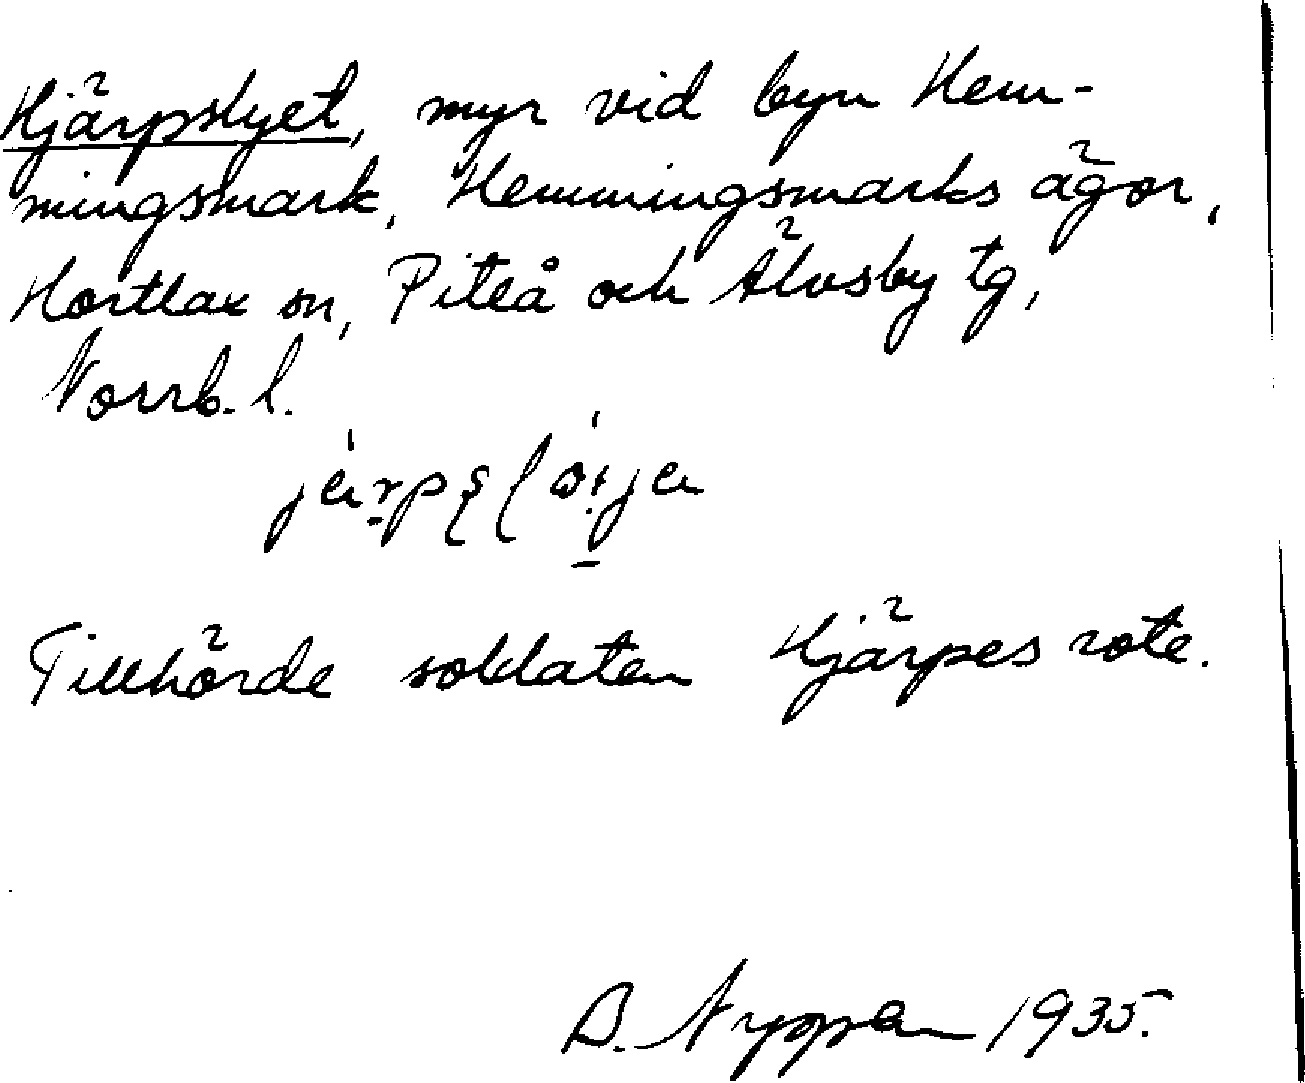 Hjärpslyet, myr vid byn Hem-
mingsmark, Hemmingsmarks ägor,
Hortlax sn, Piteå och Älvsby tg,
Norrb. l.
Tillhörde soldaten Hjärpes rote.
A. Nyppen 1935.